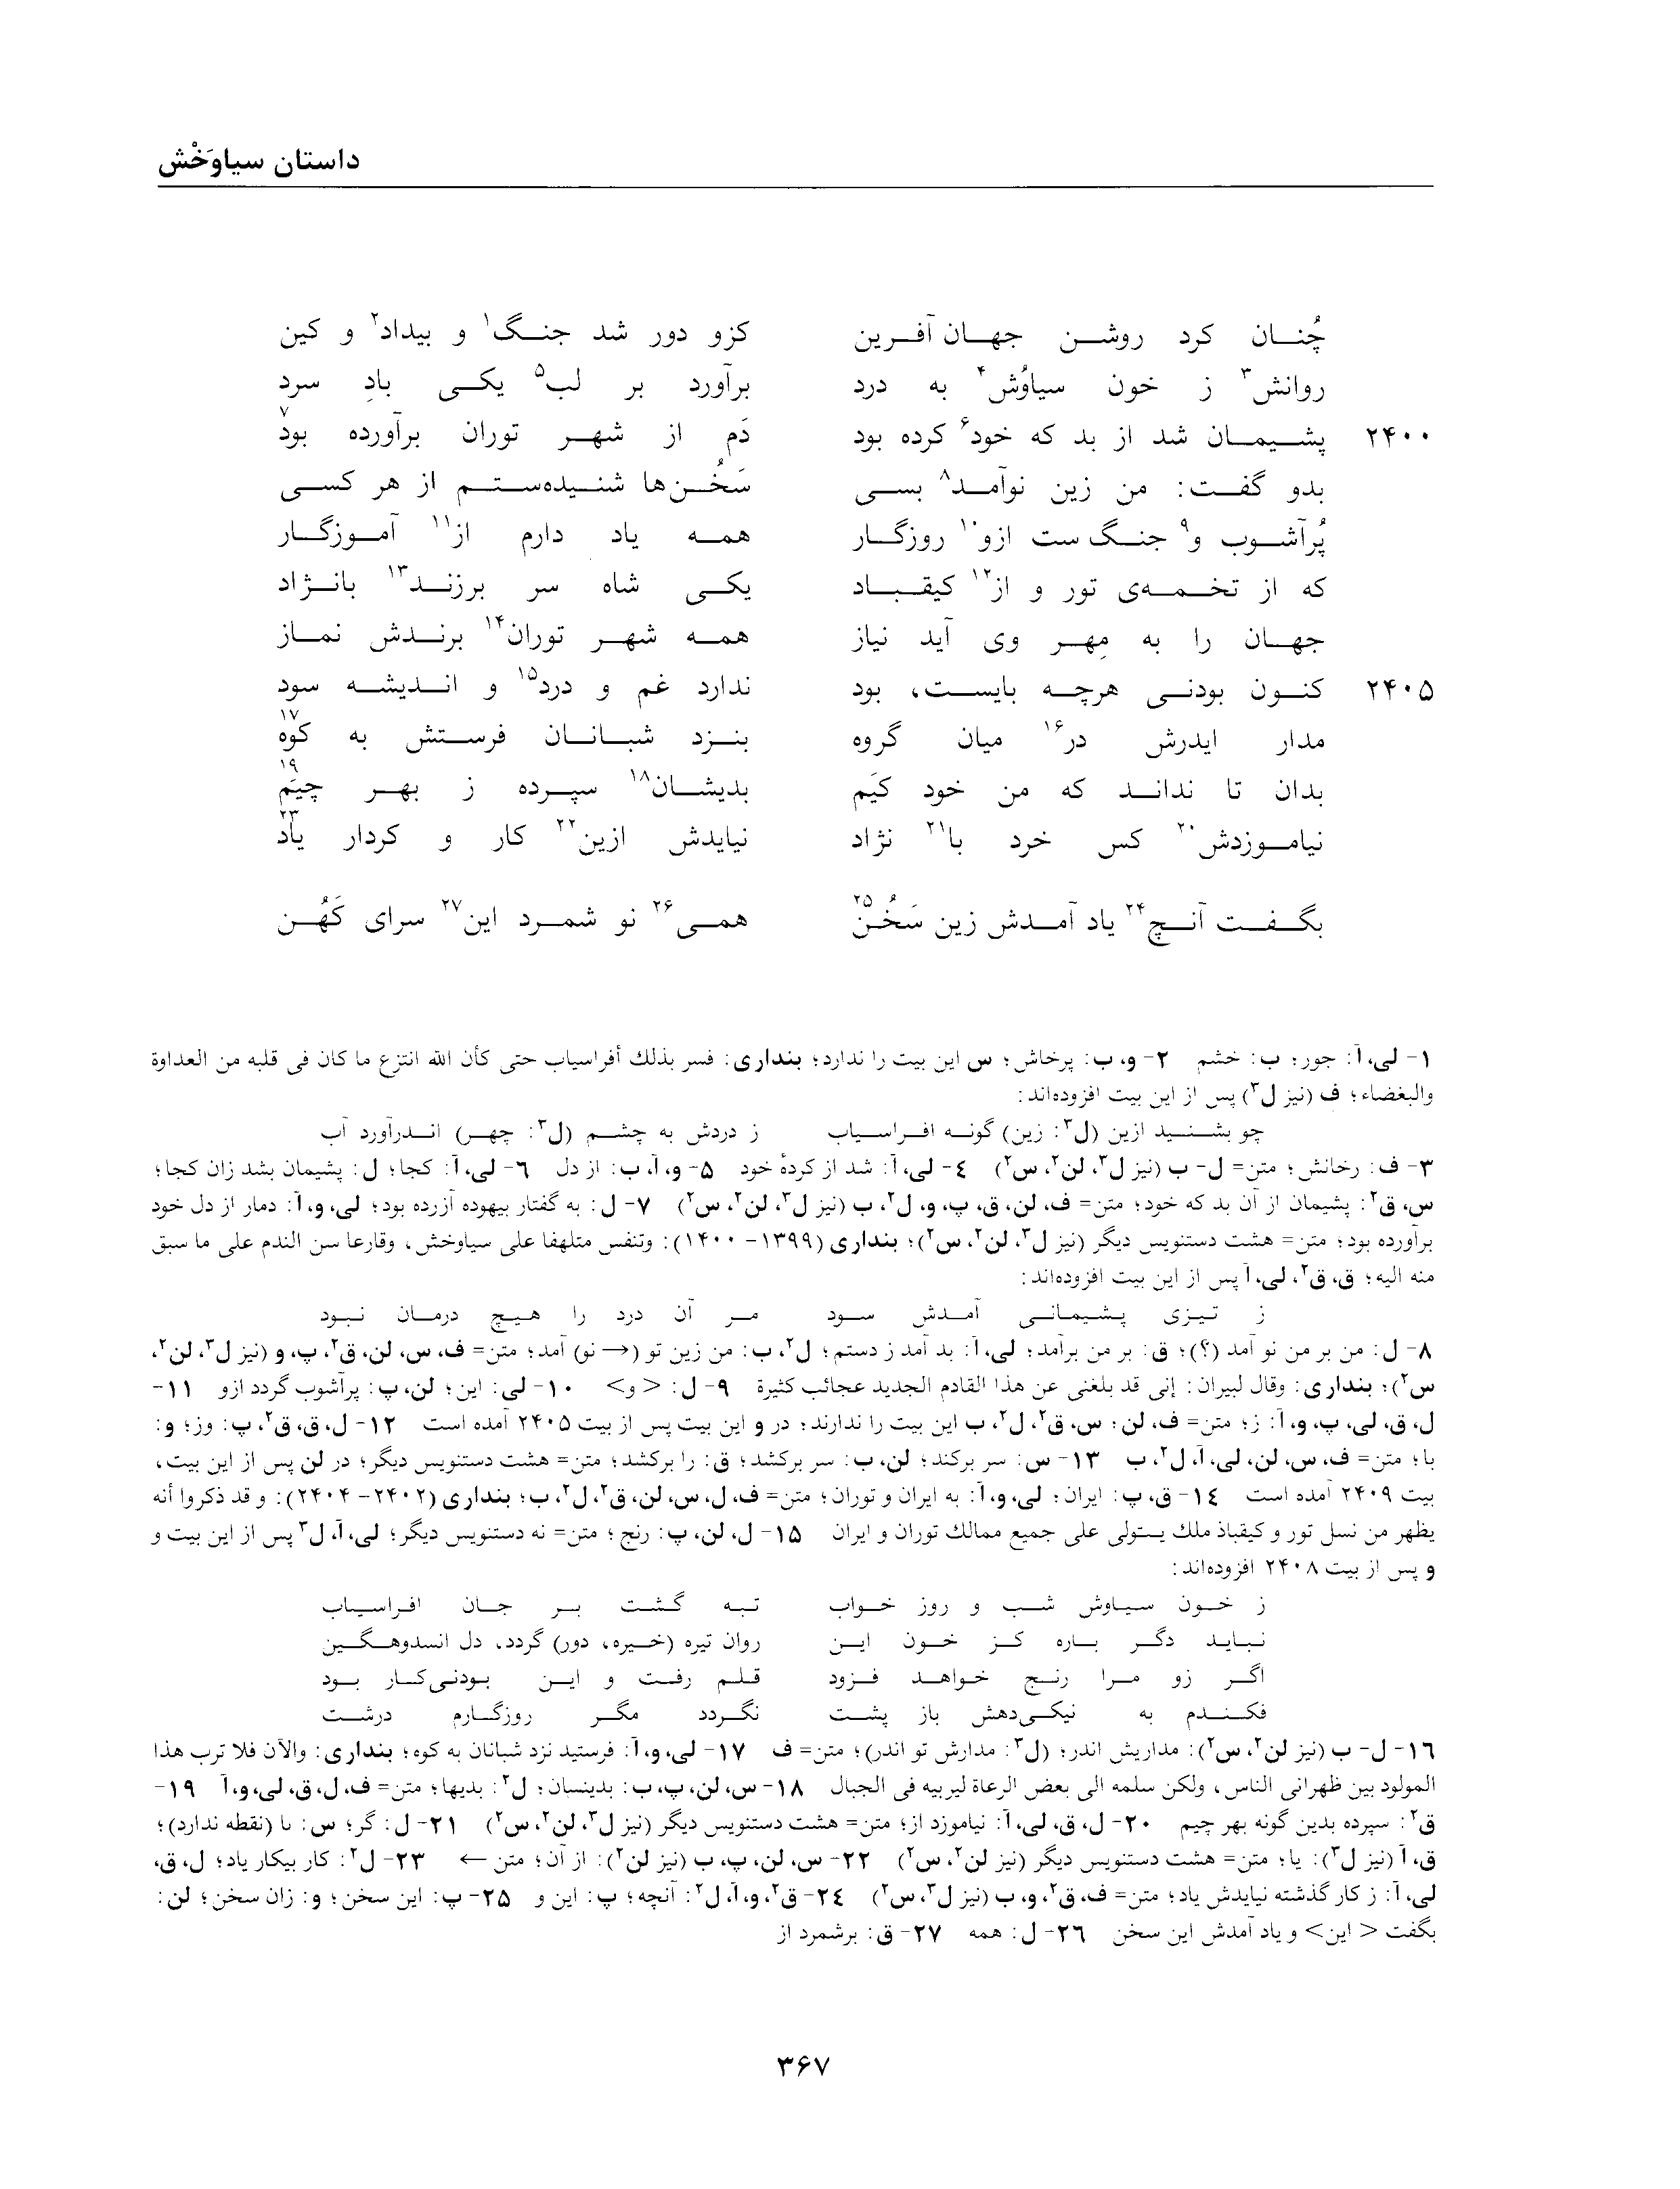 داستان سیاوَخْش
چُنان کرد روشن جهان‌آفرین کزو دور شد جنگ۱ و بیداد۲ و کین
روانش۳ ز خون سیاوُش۴ به درد برآورد بر لب۵ یکی بادِ سرد
۲۴۰۰ پشیمان شد از بد که خود۶ کرده بود دَم از شهر توران برآورده بود۷
بدو گفت: من زین نوآمد۸ بسی سَخُن‌ها شنیده‌ستم از هر کسی
پُرآشوب و۹ جنگ‌ست ازو۱۰ روزگار همه یاد دارم از۱۱ آموزگار
که از تخمه‌ی تور و از۱۲ کیقباد یکی شاه سر برزند۱۳ بانژاد
جهان را به مِهر وی آید نیاز همه شهر توران۱۴ برندش نماز
۲۴۰۵ کنون بودنی هرچه بایست، بود ندارد غم و درد۱۵ و اندیشه سود
مدار ایدرش در۱۶ میان گروه بنزد شبانان فرستش به کوه۱۷
بدان تا نداند که من خود کیَم بدیشان۱۸ سپرده ز بهر چیَم۱۹
نیاموزدش۲۰ کس خرد با۲۱ نژاد نیایدش ازین۲۲ کار و کردار یاد۲۳
بگفت آنچ۲۴ یاد آمدش زین سَخُن۲۵ همی۲۶ نو شمرد این۲۷ سرای کَهُن
۱- لی، آ: جور؛ ب: خشم ۲- و، ب: پرخاش؛ س این بیت را ندارد؛ بنداری: فسر بذلك أفراسیاب حتی کأن الله انتزع ما کان فی قلبه من العداوة
والبغضاء؛ ف (نیز ل۳) پس از این بیت افزوده‌اند:
چو بشنید ازین (ل۳: زین) گونه افراسیاب ز دردش به چشم (ل۳: چهر) اندرآورد آب
۳- ف: رخانش؛ متن= ل- ب (نیز ل۳، لن۲، س۲) ۴- لی، آ: شد از کردهٔ خود ۵- و، آ، ب: از دل ۶- لی، آ: کجا؛ ل: پشیمان بشد زان کجا؛
س، ق۲: پشیمان از آن بد که خود؛ متن= ف، لن، ق، پ، و، ل۲، ب (نیز ل۳، لن۲، س۲) ۷- ل: به گفتار بیهوده آزرده بود؛ لی، و، آ: دمار از دل خود
برآورده بود؛ متن= هشت دستنویس دیگر (نیز ل۳، لن۲، س۲)؛ بنداری (۱۳۹۹- ۱۴۰۰): وتنفس متلهفا علی سیاوخش، وقارعا سن الندم علی ما سبق
منه الیه؛ ق، ق۲، لی، آ پس از این بیت افزوده‌اند:
ز تیزی پشیمانی آمدش سود مر آن درد را هیچ درمان نبود
۸- ل: من بر من نو آمد (؟)؛ ق: بر من برآمد؛ لی، آ: بد آمد ز دستم؛ ل۲، ب: من زین تو (→ نو) آمد؛ متن= ف، س، لن، ق۲، پ، و (نیز ل۳، لن۲،
س۲)؛ بنداری: وقال لبیران: إنی قد بلغنی عن هذا القادم الجدید عجائب کثیرة ۹- ل: < و> ۱۰- لی: این؛ لن، پ: پرآشوب گردد ازو ۱۱-
ل، ق، لی، پ، و، آ: ز؛ متن= ف، لن؛ س، ق۲، ل۲، ب این بیت را ندارند؛ در و این بیت پس از بیت ۲۴۰۵ آمده است ۱۲- ل، ق، ق۲، پ: وز؛ و:
با؛ متن= ف، س، لن، لی، آ، ل۲، ب ۱۳- س: سر برکند؛ لن، ب: سر برکشد؛ ق: را برکشد؛ متن= هشت دستنویس دیگر؛ در لن پس از این بیت،
بیت ۲۴۰۹ آمده است ۱۴- ق، پ: ایران؛ لی، و، آ: به ایران و توران؛ متن= ف، ل، س، لن، ق۲، ل۲، ب؛ بنداری (۲۴۰۲- ۲۴۰۴): و قد ذکروا أنه
یظهر من نسل تور و کیقباذ ملك یستولی علی جمیع ممالك توران و ایران ۱۵- ل، لن، پ: رنج؛ متن= نه دستنویس دیگر؛ لی، آ، ل۳ پس از این بیت و
و پس از بیت ۲۴۰۸ افزوده‌اند:
ز خون سیاوش شب و روز خواب تبه گشت بر جان افراسیاب
نباید دگر باره کز خون این روان تیره (خیره، دور) گردد، دل اندوهگین
اگر زو مرا رنج خواهد فزود قلم رفت و این بودنی‌کار بود
فکندم به نیکی‌دهش باز پشت نگردد مگر روزگارم درشت
۱۶- ل- ب (نیز لن۲، س۲): مداریش اندر؛ (ل۳: مدارش تو اندر)؛ متن= ف ۱۷- لی، و، آ: فرستید نزد شبانان به کوه؛ بنداری: والآن فلا ترب هذا
المولود بین ظهرانی الناس، ولکن سلمه الی بعض الرعاة لیربیه فی الجبال ۱۸- س، لن، پ، ب: بدینسان؛ ل۲: بدیها؛ متن= ف، ل، ق، لی، و، آ ۱۹-
ق۲: سپرده بدین گونه بهر چیم ۲۰- ل، ق، لی، آ: نیاموزد از؛ متن= هشت دستنویس دیگر (نیز ل۳، لن۲، س۲) ۲۱- ل: گر؛ س: ٮا (نقطه ندارد)؛
ق، آ (نیز ل۳): یا؛ متن= هشت دستنویس دیگر (نیز لن۲، س۲) ۲۲- س، لن، پ، ب (نیز لن۲): از آن؛ متن ← ۲۳- ل۲: کار بیکار یاد؛ ل، ق،
لی، آ: ز کار گذشته نیایدش یاد؛ متن= ف، ق۲، و، ب (نیز ل۳، س۲) ۲۴- ق۲، و، آ، ل۲: آنچه؛ پ: این و ۲۵- پ: این سخن؛ و: زان سخن؛ لن:
بگفت < این> و یاد آمدش این سخن ۲۶- ل: همه ۲۷- ق: برشمرد از
۳۶۷